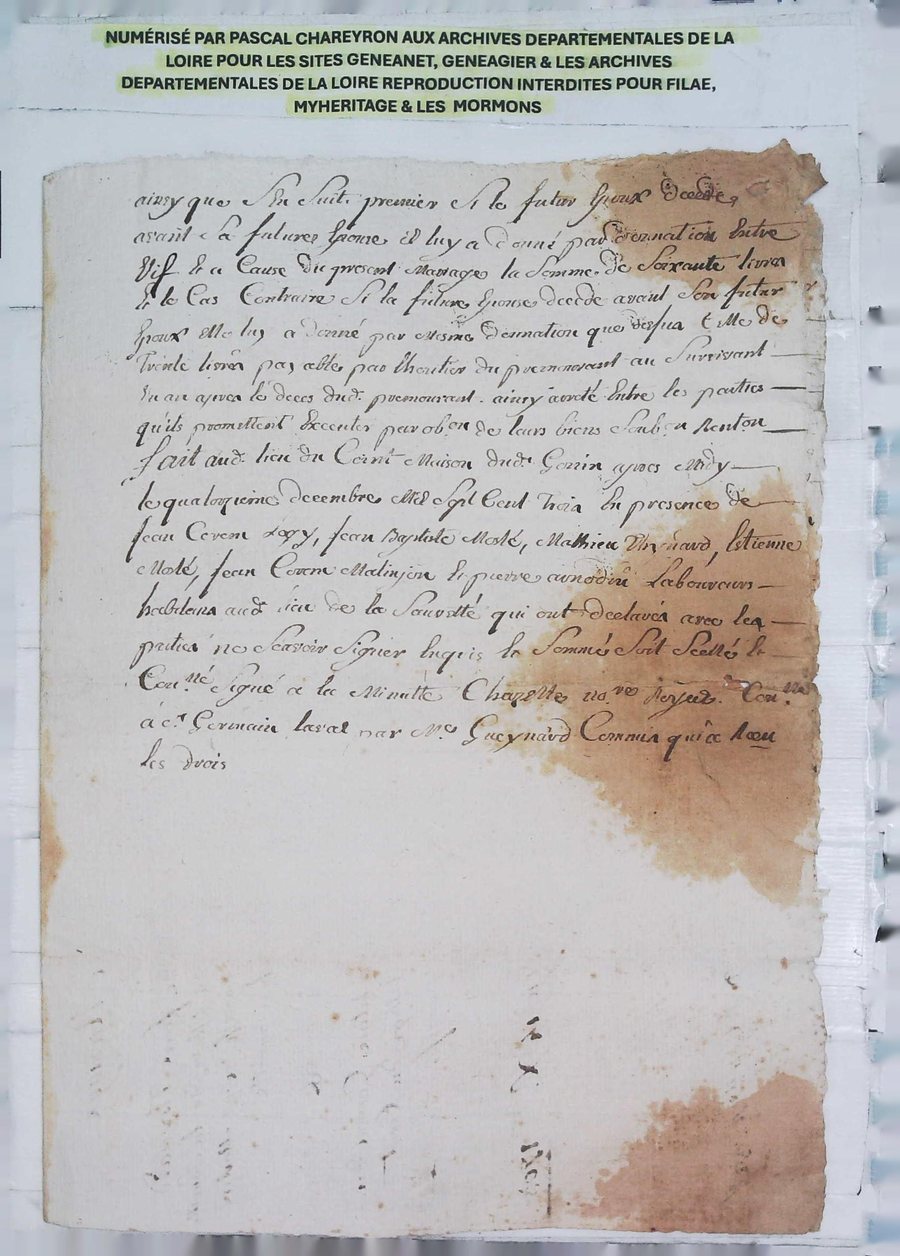 NUMÉRISÉ PAR PASCAL CHAREYRON AUX ARCHIVES DEPARTEMENTALES DE LA
LOIRE POUR LES SITES GENEANET, GENEAGIER & LES ARCHIVES
DEPARTEMENTALES DE LA LOIRE REPRODUCTION INTERDITES POUR FILAE,
MYHERITAGE & LES MORMONS
ainsy que S'En Suit premier Si le futur Epoux decede
avant Sa future Epouse il luy a donné par donnation Entre
Vif Et a Cause du present Mariage la Somme de Soixante livres
Et le Cas Contraire Si la future Epouse decede avant Son futur
Epoux Elle luy a donné par mesme donnation que desus Celle de
Trente livres payable par l'heritier du premourant au Survivant
Un an apres le deces dud. premourant. ainsy arreté Entre les parties
qu'ils promettent Executer par ob.on de leurs biens Soub.n Renton
fait aud. lieu du Maison dud. Gonin apres Midy
le quatorzieme decembre Mil Sept Cent trois En presence de
Jean Jean Baptiste Mosté, Mathieu Estienne
Mosté, Jean Et pierre Laboureurs
habitans aud. lieu de la Sauveté qui ont declarés avec les
parties ne Scavoir Signer Enquis le Sommé Soit Scellé le
Con.né Signé a la Minutte Chazette no.re Royal. Con.né
à St. Germain laval par Me. Gueynard Commis qui a Receu
les drois